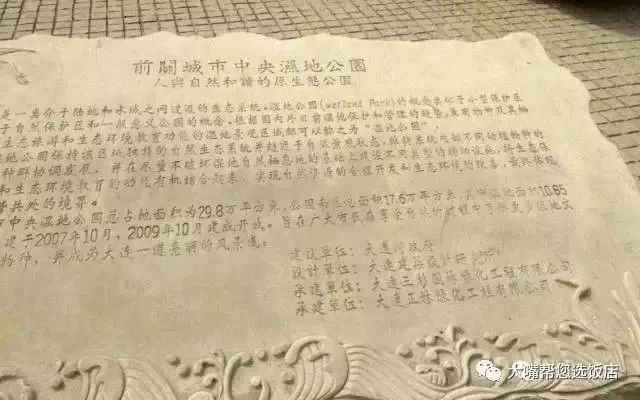 前關城市中央濕地公園
人與自然和諧的原生態公園
是一類介于陆地和水域之间过渡的生态系统。湿地公园(wetland Park)的概念类似于小型保护区
于自然保护区和一般意义公园的概念。根据国内外目前湿地保护和管理的趋势,兼有物种及其栖
生态旅游和生态环境教育功能的湿地景观区域都可以称之为"湿地公园"。
地公园保持该区域独特的自然生态系统并趋近于自然景观状态,维持系统内部不同动植物种的
种群协调发展,并在尽量不破坏湿地自然栖息地的基础上建设不同类型的辅助设施,将生态保
和生态环境教育的功能有机结合起来,实现自然资源的合理开发和生态环境的改善,最终体现
谐共处的境界。
市中央湿地公园总占地面积为29.8万平方米,公园南区总面积17.6万平方米,其中湿地面积10.85
建于2007年10月,2009年10月建成开放。旨在广大市民在享受自然的过程中了解更多湿地文
物种,并成为大连一道亮丽的风景线。
建设單位:大連市政府
設計單位:大連建築設計研
承建單位:大連三杉園林綠化工程有限公司
承建單位:大連正林綠化工程有限公司
大嘴帮您选饭店